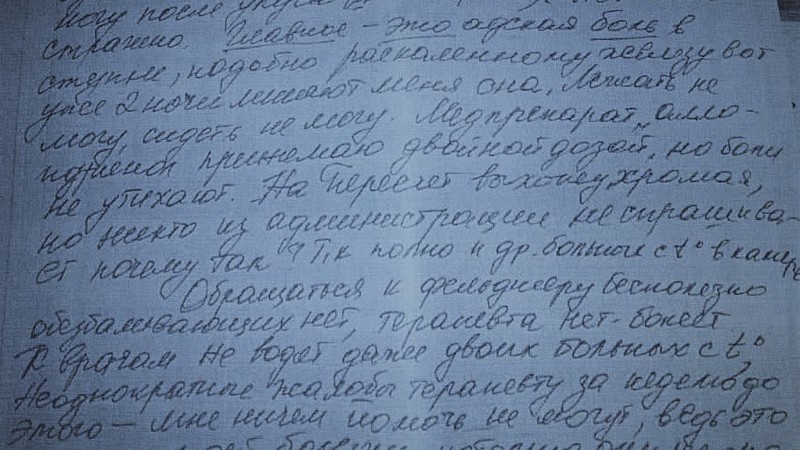 ногу после укуса
страшно. Главное - это адская боль в
ступне, подобно раскаленному железу вот
уже 2 ночи лишают меня сна, лежать не
могу, сидеть не могу. Медпрепарат „алло-
принимаю двойной дозой, но боли
не утихают. На пересчет выхожу, хромая,
но никто из администрации не спрашива-
ет почему так? Т.к полно и др. больных с t° в камере
Обращаться к фельдшеру бесполезно
обезбаливающих нет, терапевта нет - болеет
К врачам не водят даже двоих больных с t°
Неоднократные жалобы терапевту за неделю до
этого - мне ничем помочь не могут, ведь это